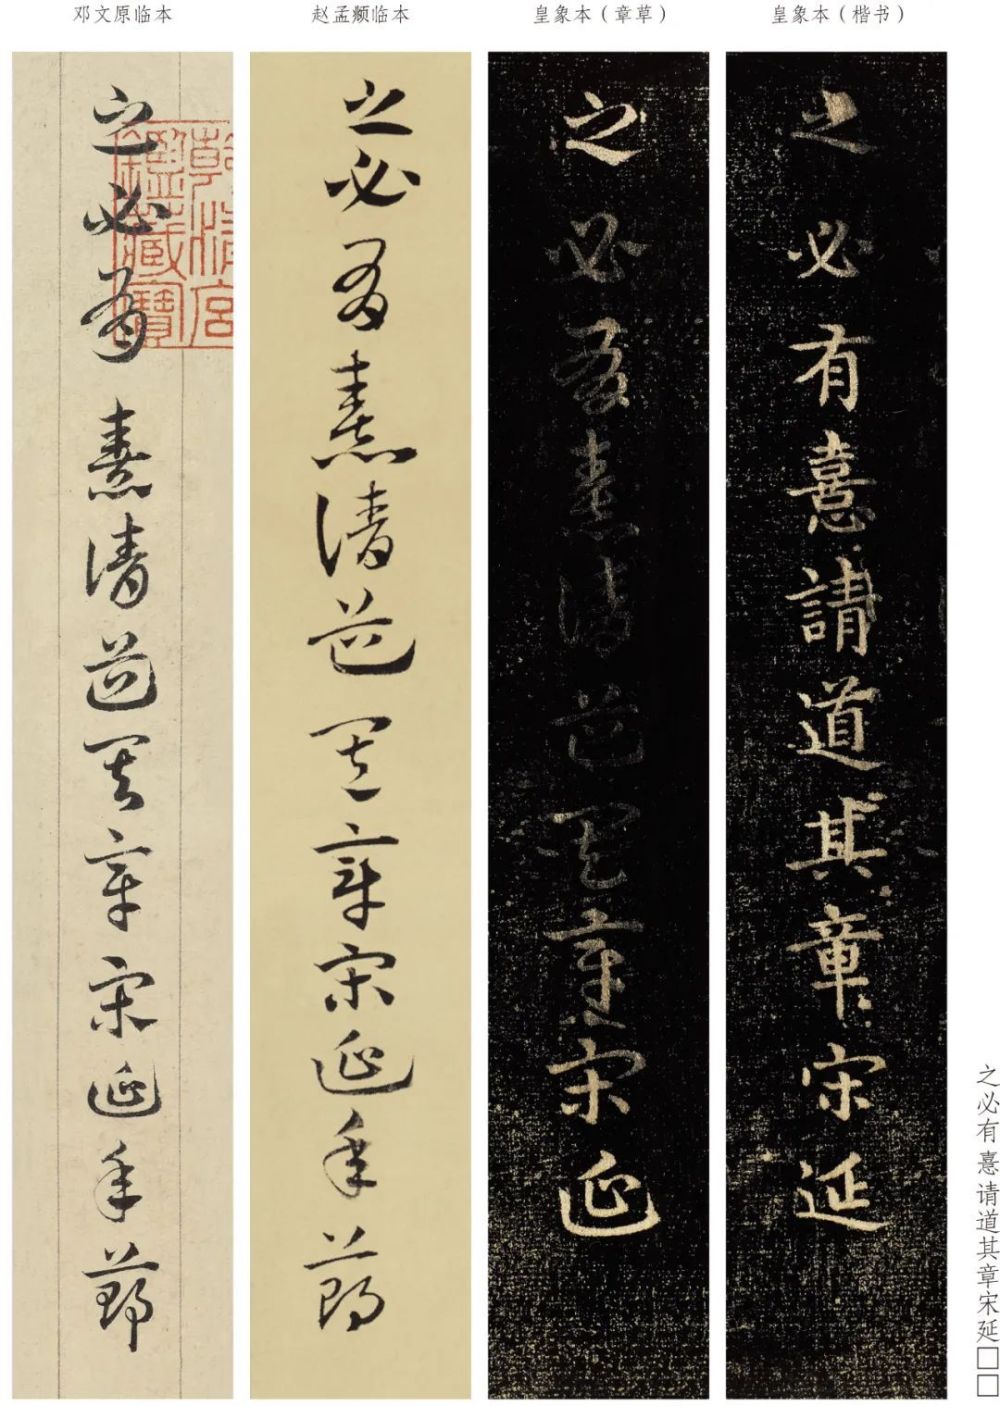 邓文原临本
赵孟頫临本
皇象本（章草）
皇象本（楷书）
之必有憙請道其章宋延年鄭
乾清宮鑑藏寶
之必有憙請道其章宋延年鄭
之必有憙請道其章宋延
之必有憙請道其章宋延
之必有憙请道其章宋延□□